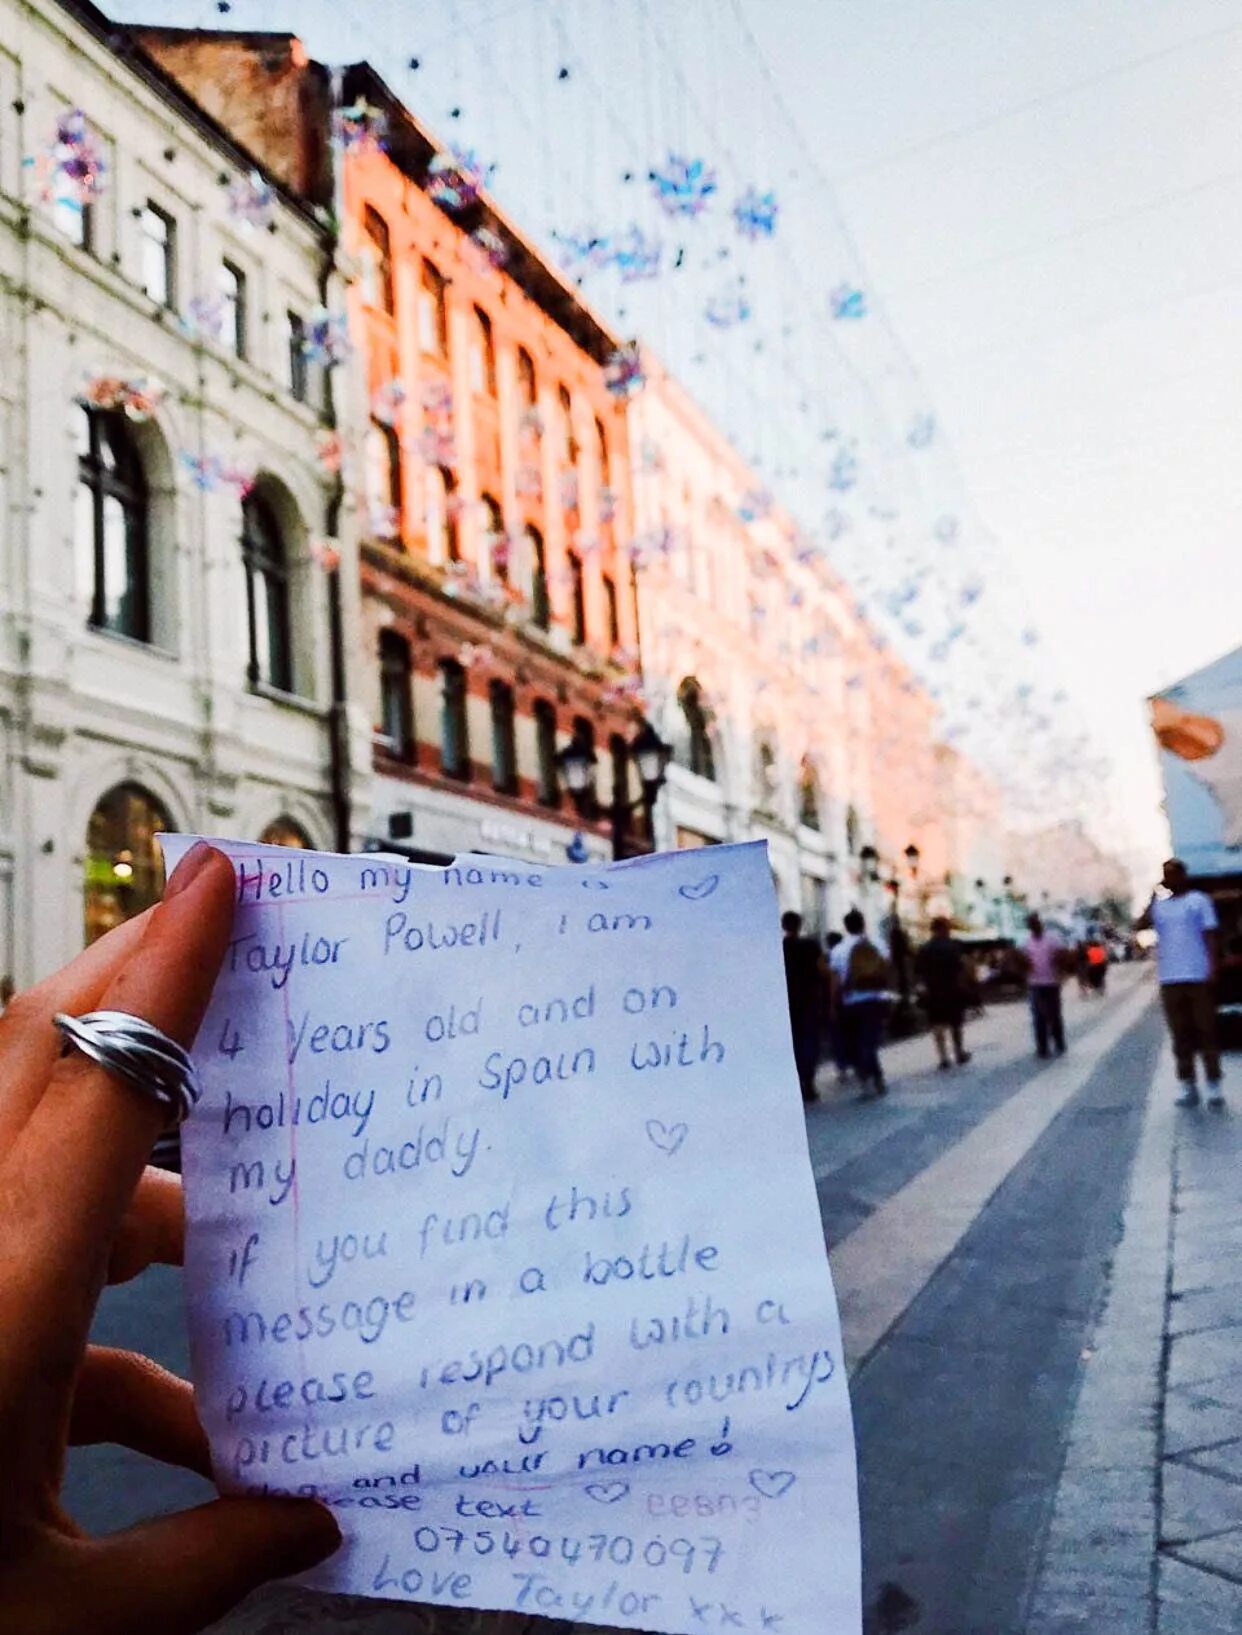 Hello my name is
Taylor Powell, i am
4 Years old and on
holiday in Spain with
my daddy.
if you find this
message in a bottle
please respond with a
picture of your countrys
flag and your name!
please text
07540470097
Love Taylor xxx